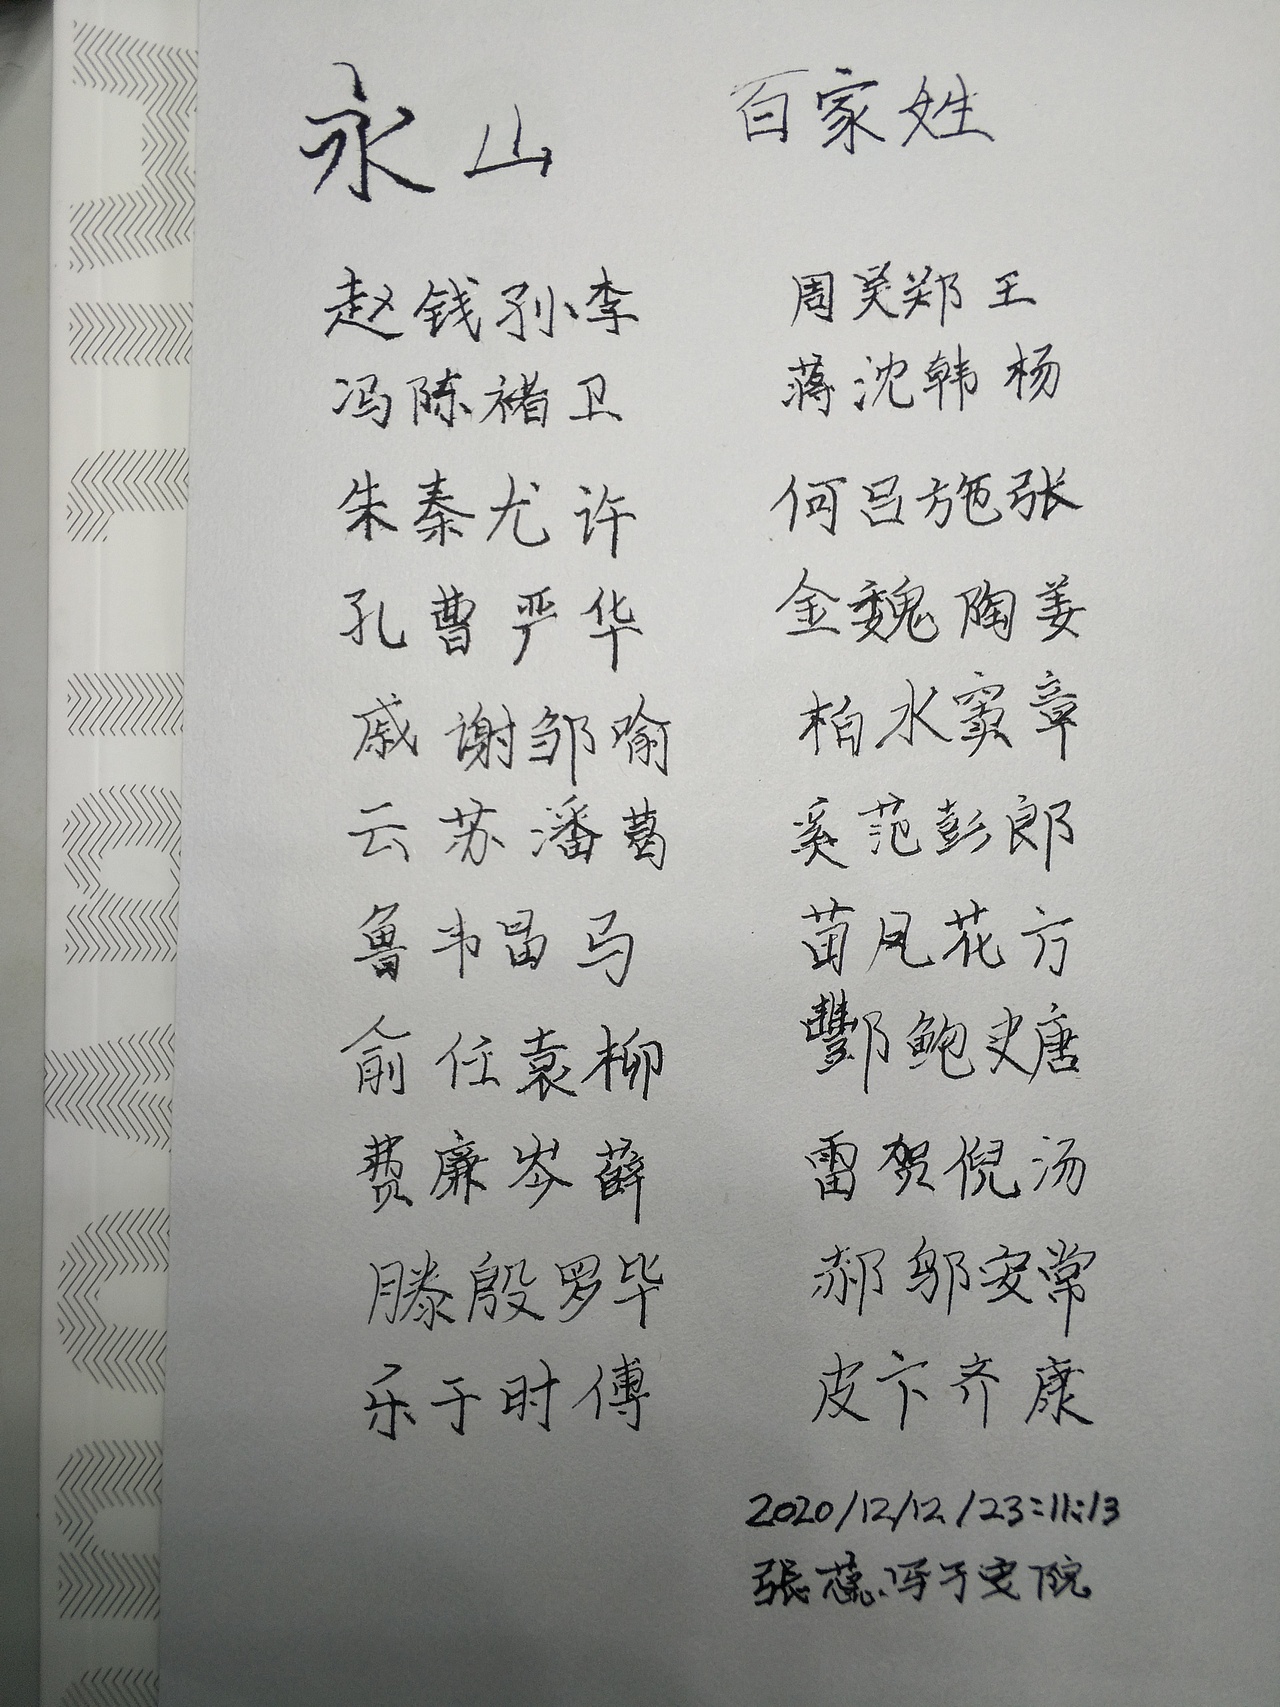 永山 百家姓
赵钱孙李 周吴郑王
冯陈褚卫 蒋沈韩杨
朱秦尤许 何吕施张
孔曹严华 金魏陶姜
戚谢邹喻 柏水窦章
云苏潘葛 奚范彭郎
鲁韦昌马 苗凤花方
俞任袁柳 酆鲍史唐
费廉岑薛 雷贺倪汤
滕殷罗毕 郝邬安常
乐于时傅 皮卞齐康
2020/12/12/23:11:13
张蕊.写于院